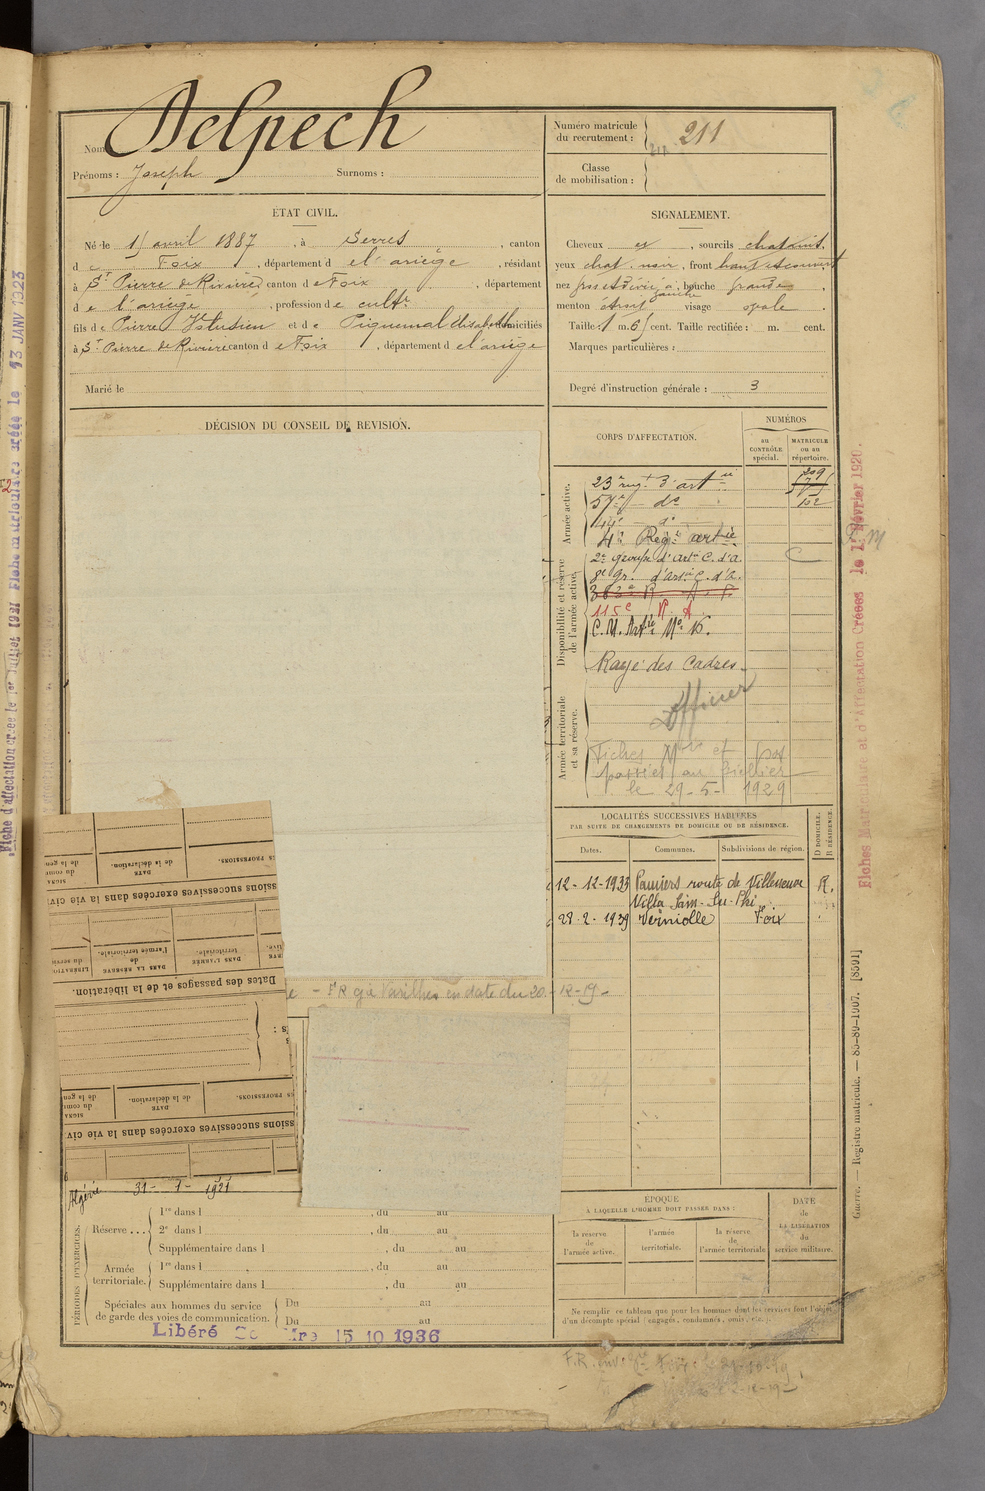 Nom Delpech
Prénoms : Joseph Surnoms :
Numéro matricule du recrutement : 211
Classe de mobilisation :
ÉTAT CIVIL.
Né le 15 avril 1887, à Serres, canton
de Foix, département de l'ariège, résidant
à St Pierre de Rivière canton de Foix, département
de l'ariège, profession de cultr
fils de Pierre et de Piquemal Elisabeth domiciliés
à St Pierre de Rivière canton de Foix, département de l'ariège
Marié le
SIGNALEMENT.
Cheveux et, sourcils chatains.
yeux chat. noir, front haut et couvert
nez gros et dévié à gauche, bouche grande,
menton étroit visage ovale.
Taille : 1 m. 65 cent. Taille rectifiée : m. cent.
Marques particulières :
Degré d'instruction générale : 3
DÉCISION DU CONSEIL DE REVISION.
CORPS D'AFFECTATION.
NUMÉROS
au CONTRÔLE spécial.
MATRICULE ou au répertoire.
Armée active.
23e regt d'artie 209
57e do 102
14e do
4e Regt artie
Disponibilité et réserve de l'armée active.
2e groupe d'artie C. d'a.
8e gr. d'artie C. d'a.
363e R. A. P.
115e R. A.
C. M. Artie No 16.
Rayé des Cadres.
Armée territoriale et sa réserve.
Officier
Fiches Mles et
passées au fichier
le 29-5-1929
LOCALITÉS SUCCESSIVES HABITÉES
PAR SUITE DE CHANGEMENTS DE DOMICILE OU DE RÉSIDENCE.
Dates. Communes. Subdivisions de région. D DOMICILE. R RÉSIDENCE.
12-12-1933 Pamiers route de Villeneuve R.
Villa Sam-Su-Phi
28-2-1939 Verniolle Foix
Dates des passages et de la libération.
DANS L'ARMÉE territoriale.
DANS LA RÉSERVE de l'armée territoriale.
ssions successives exercées dans la vie civ
DATE de la déclaration.
ES PROFESSIONS.
ssions successives exercées dans la vie civ
DATE de la déclaration.
ES PROFESSIONS.
- FR gie Varilhes en date du 20-12-19-
Algérie 31-1-1921
PÉRIODES D'EXERCICES.
Réserve...
1re dans l , du au
2e dans l , du au
Supplémentaire dans l , du au
Armée territoriale.
1re dans l , du au
Supplémentaire dans l , du au
Spéciales aux hommes du service de garde des voies de communication.
Du au
Du au
Libéré 15 10 1936
ÉPOQUE
À LAQUELLE L'HOMME DOIT PASSER DANS :
la réserve de l'armée active.
l'armée territoriale.
la réserve de l'armée territoriale.
DATE de LA LIBÉRATION du service militaire.
Ne remplir ce tableau que pour les hommes dont les services font l'objet
d'un décompte spécial (engagés, condamnés, omis, etc.).
Fiches Matriculaire et d'Affectation Créées le 1r Février 1920.
Guerre. — Registre matricule. — 85-89-1907. [8591]
Fiche d'affectation créée le 1er Juillet 1921 Fiche matriculaire créée le 13 JANV 1923